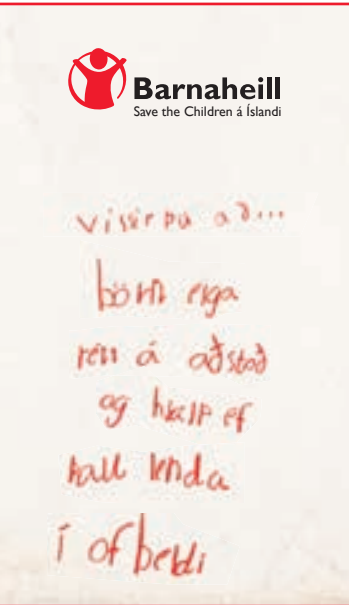 Barnaheill
Save the Children á Íslandi
vissir þu að...
börn eiga
rétt á aðstoð
og hjálp ef
þau lenda
í ofbeldi